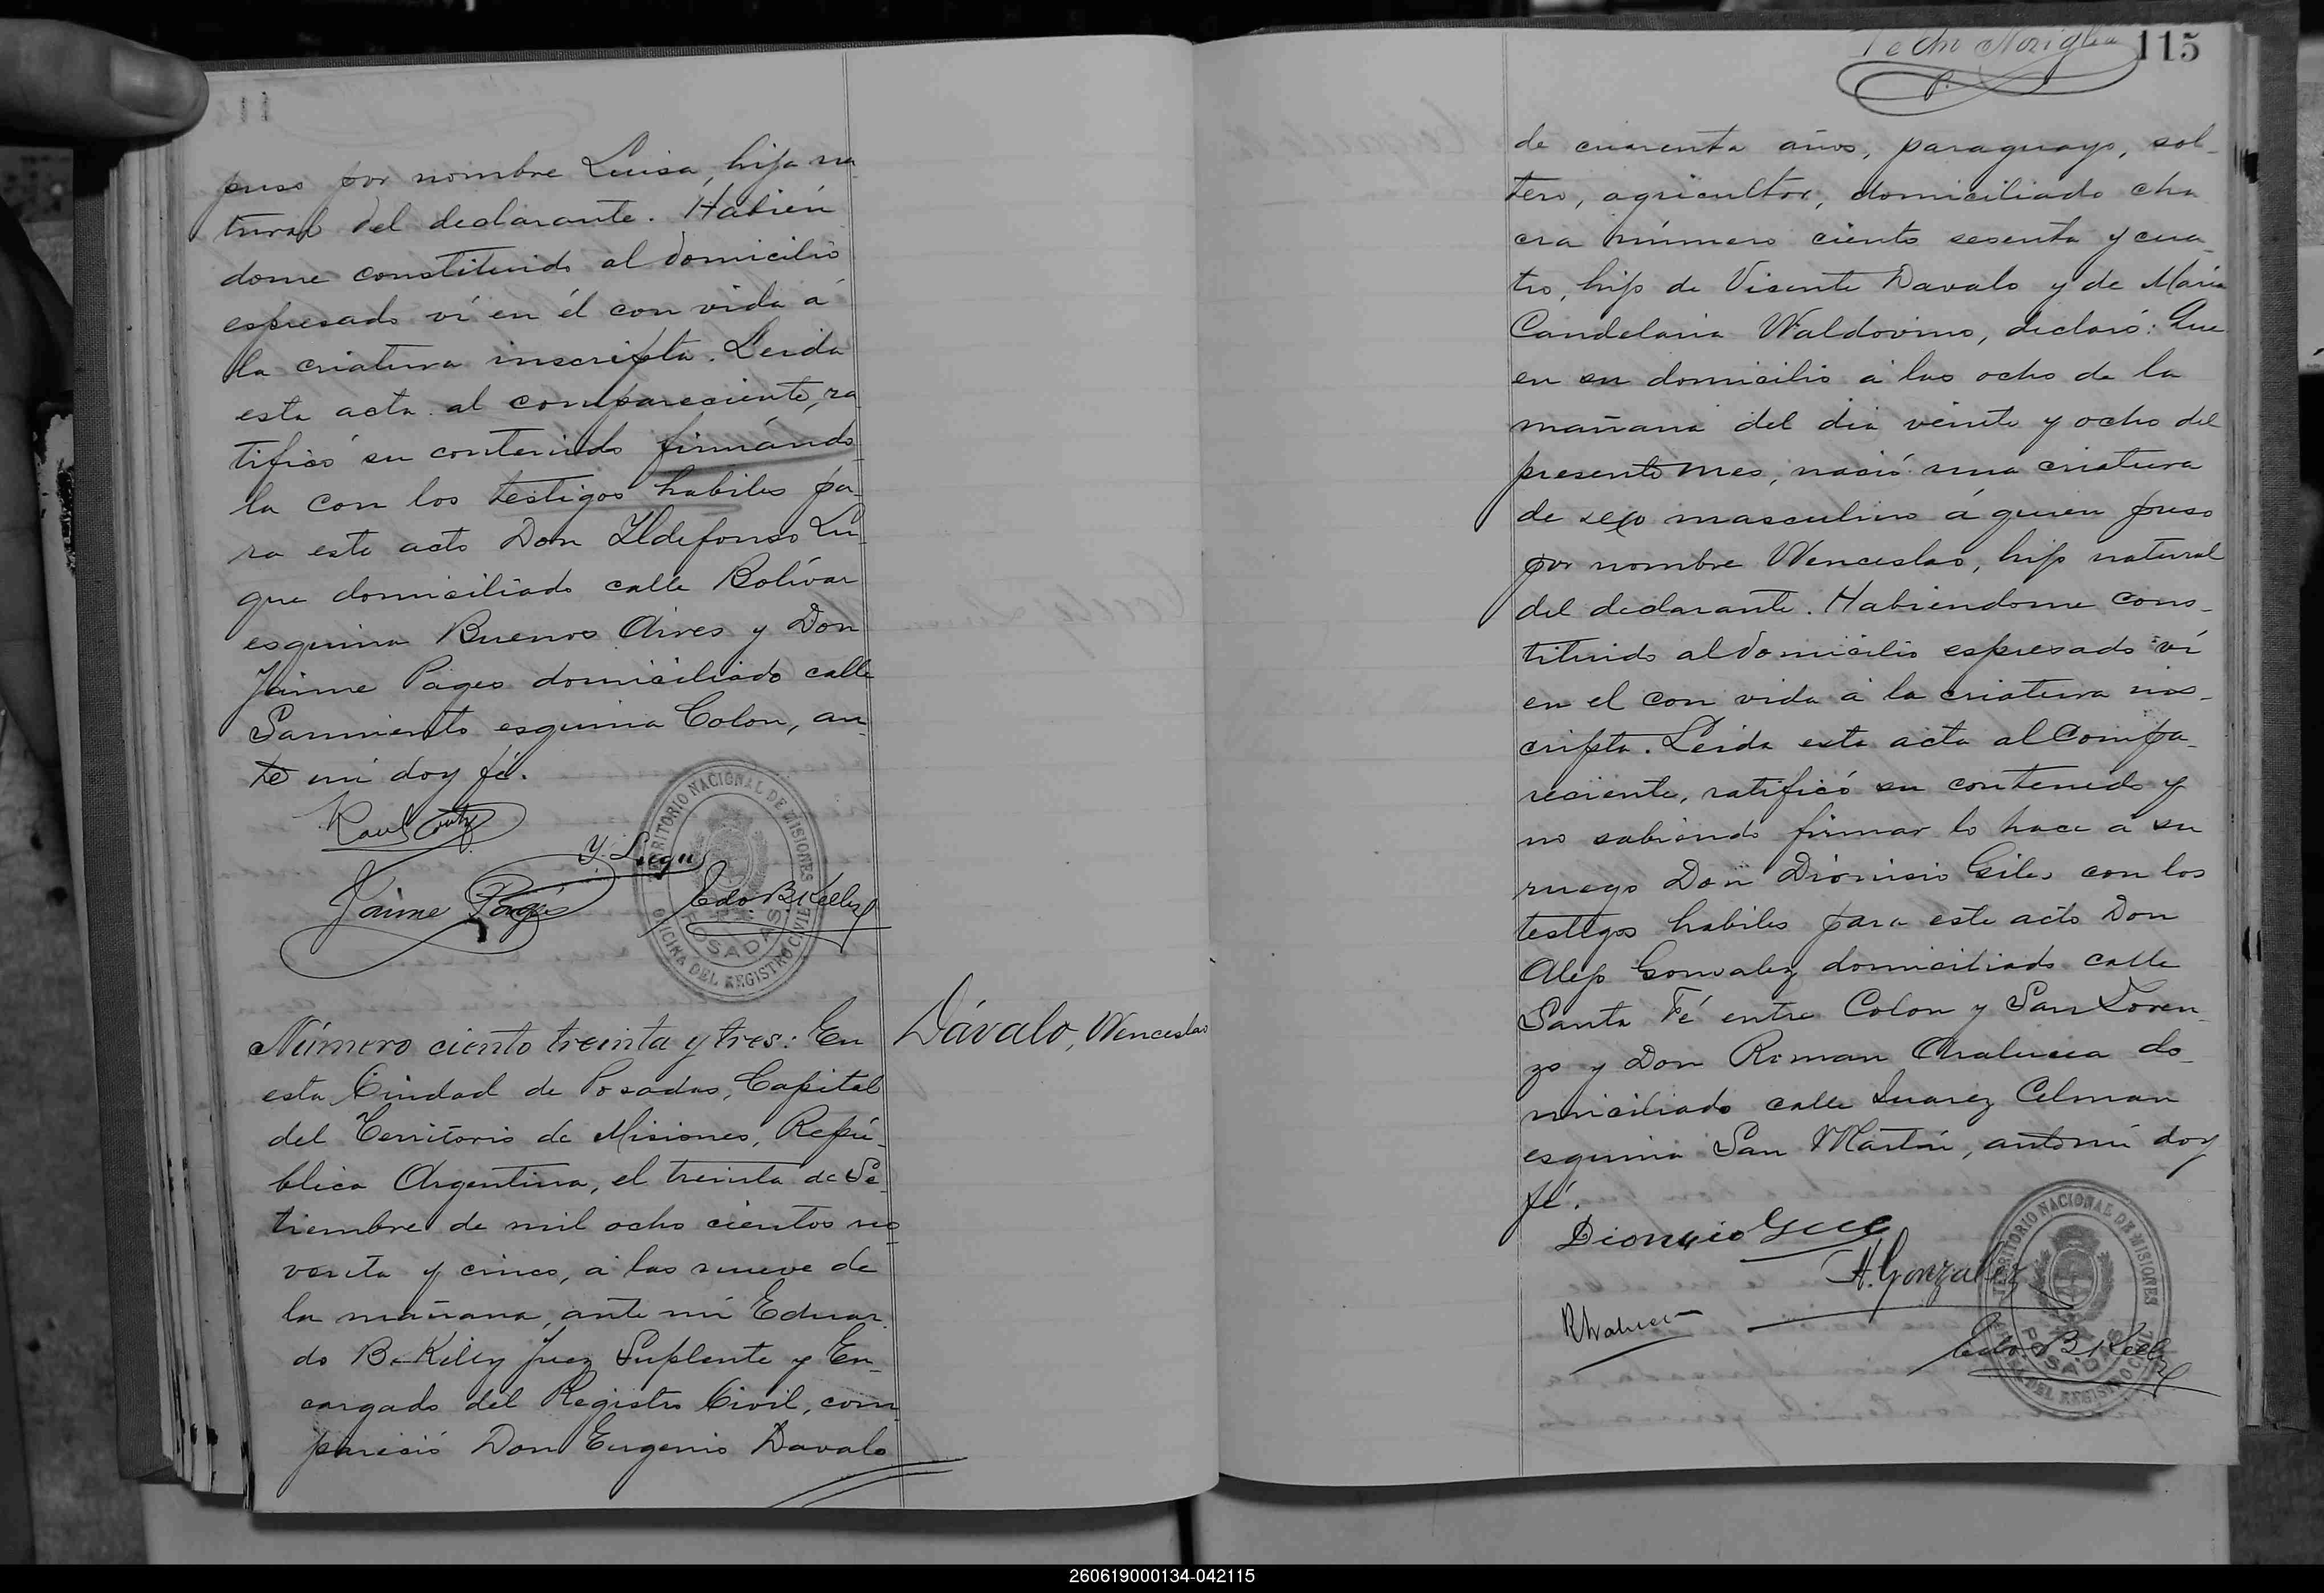 puso por nombre Luisa, hija na
tural del declarante. Habién
dome constituido al domicilio
espresado ví en él con vida á
la criatura inscripta. Leida
esta acta al compareciente, ra
tificó su contenido firmándo
la con los testigos habiles pa-
ra este acto Don Yldefonso Lu
que domiciliado calle Bolívar
esquina Buenos Aires y Don
Jaime Pages domiciliado calle
Sarmiento esquina Colon, an
te mi doy fé.
Y. Luque
Jaime Pages
Edo. B. Kelly
TERRITORIO NACIONAL DE MISIONES
POSADAS
OFICINA DEL REGISTRO CIVIL
Número ciento treinta y tres: En
Dávalo, Wenceslao
esta Ciudad de Posadas, Capital
del Territorio de Misiones, Repú-
blica Argentina, el treinta de Se-
tiembre de mil ocho cientos no
venta y cinco, á las nueve de
la mañana, ante mí Eduar
do B. Kelly Juez Suplente y En
cargado del Registro Civil, com
pareció Don Eugenio Davalo
115
de cuarenta años, paraguayo, sol-
tero, agricultor, domiciliado cha
cra número ciento sesenta y cua-
tro, hijo de Vicente Davalo y de María
Candelaria Waldovino, declaró: Que
en su domicilio á las ocho de la
mañana del dia veinte y ocho del
presente mes, nació una criatura
de sexo masculino á quien puso
por nombre Wenceslao, hijo natural
del declarante. Habiendome cons-
tituido al domicilio espresado ví
en el con vida á la criatura ins-
cripta. Leida esta acta al Compa-
reciente, ratificó su contenido y
no sabiendo firmar lo hace á su
ruego Don Dionisio Giles con los
testigos habiles para este acto Don
Alejo Gonzalez domiciliado calle
Santa Fé entre Colon y San Loren
zo y Don Roman do-
miciliado calle Juarez Celman
esquina San Martín, ante mí doy
fé.
Dionicio
A. Gonzalez
Edo. B. Kelly
TERRITORIO NACIONAL DE MISIONES
POSADAS
OFICINA DEL REGISTRO CIVIL
260619000134-042115